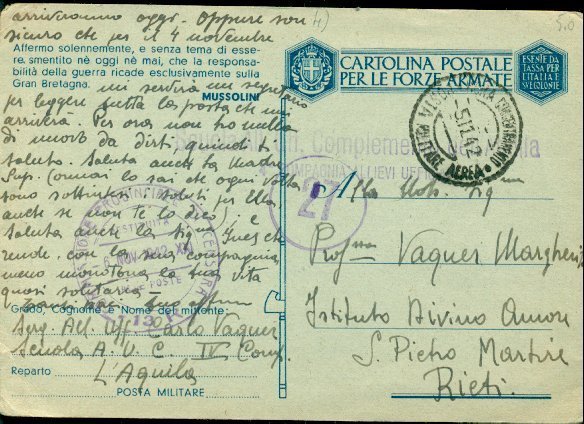 arriveranno oggi. Oppure son
sicuro che per il 4 novembre
Affermo solennemente, e senza tema di esse-
re smentito nè oggi nè mai, che la responsa-
bilità della guerra ricade esclusivamente sulla
Gran Bretagna.
MUSSOLINI
mi servirà un segretario
per leggere tutta la posta che mi
arriverà. Per ora non ho nulla
di nuovo da dirti, quindi
saluto. Saluta anche la Madre
Sup. (ormai lo sai che ogni volta
sono sottintesi i saluti per Ella
anche se non te lo dico) e
Saluta anche la Sig.na Ines che
rende con la sua compagnia
meno monotona la tua vita
quasi solitaria.
tuo aff.mo
Grado, Cognome e Nome del mittente:
Serg. All. Uff. Carlo Vaquer
Scuola A. U. C. IV Comp.
Reparto L'Aquila
POSTA MILITARE
4)
50
CARTOLINA POSTALE
PER LE FORZE ARMATE
ESENTE DA
TASSA PER
L'ITALIA E
SUE COLONIE
MILITARE
AEREA
Complementi
COMPAGNIA ALLIEVI UFF
27
NOV 1942 XXI
POSTE
Alla Nob. Sig.na
Prof.ssa Vaquer Margherita
Istituto Divino Amore
S. Pietro Martire
Rieti.